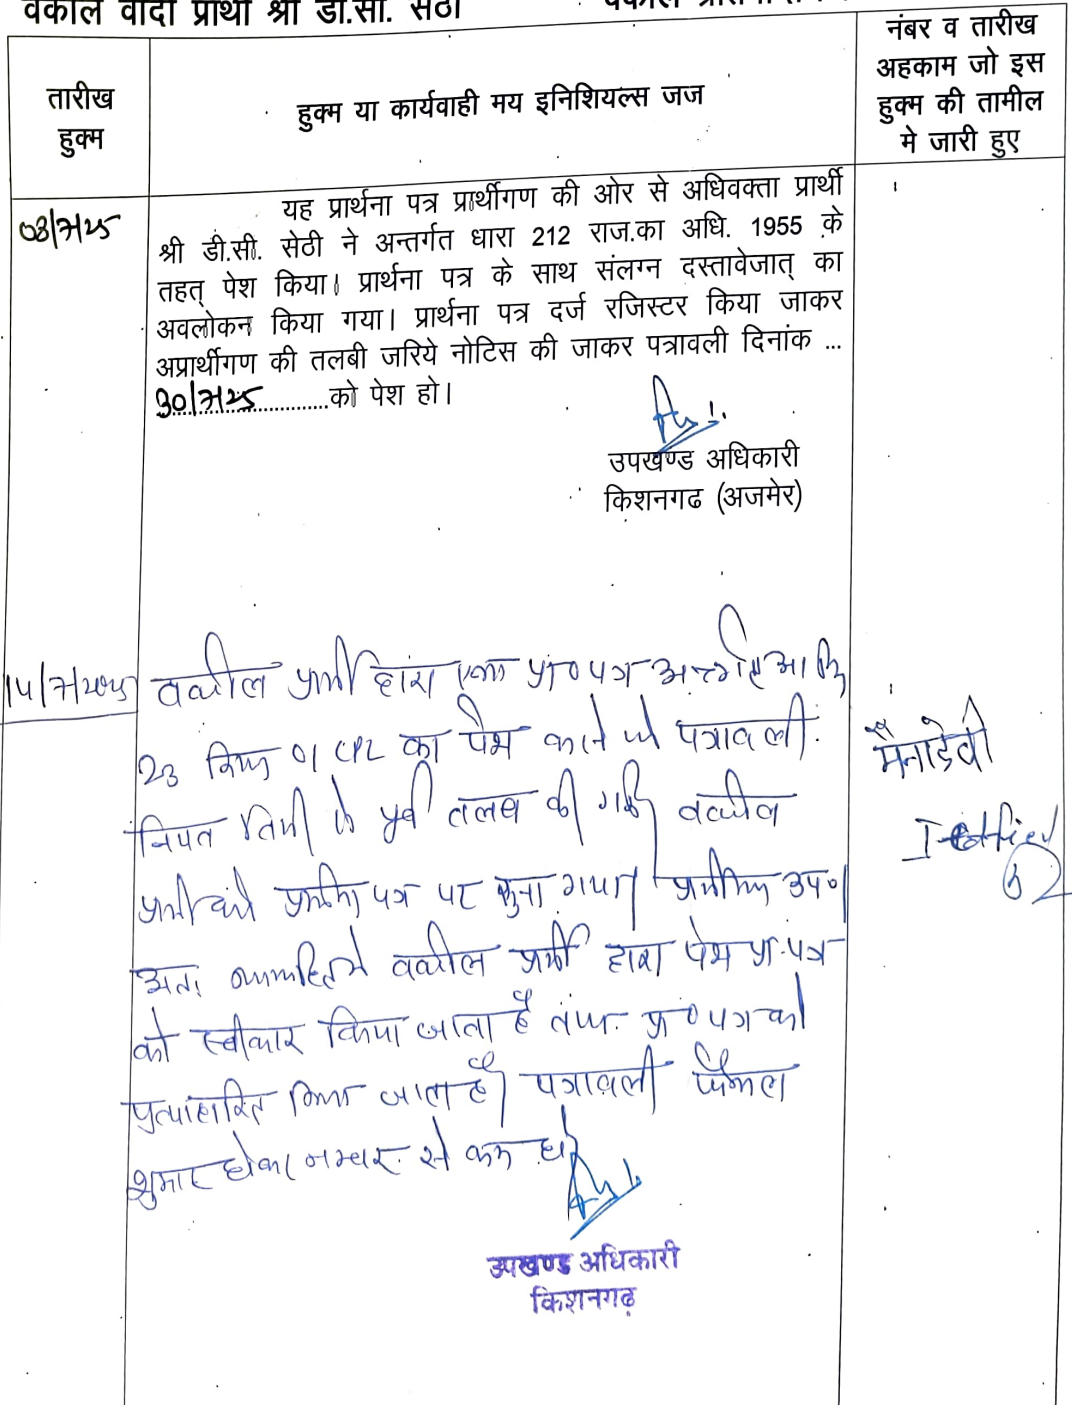 वकील वादी प्रार्थी श्री डी.सी. सेठी
तारीख
हुक्म
हुक्म या कार्यवाही मय इनिशियल्स जज
नंबर व तारीख
अहकाम जो इस
हुक्म की तामील
मे जारी हुए
यह प्रार्थना पत्र प्रार्थीगण की ओर से अधिवक्ता प्रार्थी
श्री डी.सी. सेठी ने अन्तर्गत धारा 212 राज.का अधि. 1955 के
तहत् पेश किया। प्रार्थना पत्र के साथ संलग्न दस्तावेजात् का
अवलोकन किया गया। प्रार्थना पत्र दर्ज रजिस्टर किया जाकर
अप्रार्थीगण की तलबी जरिये नोटिस की जाकर पत्रावली दिनांक ...
30/7/25 को पेश हो।
उपखण्ड अधिकारी
किशनगढ (अजमेर)
14/7/2025
वकील प्रार्थी द्वारा एक प्रा० पत्र अन्तर्गत आ
23 नियम 01 CPC का पेश करने पत्रावली
नियत तिथी के पूर्व तलब की गई। वकील
प्रार्थी को प्रार्थना पत्र पर सुना गया। उप०।
अतः वकील प्रार्थी द्वारा पेश प्रा. पत्र
को स्वीकार किया जाता है प्रा० पत्र को
प्रत्याहारित किया जाता है। पत्रावली फैसल
शुमार होकर नम्बर से कम हो।
मैनादेवी
उपखण्ड अधिकारी
किशनगढ़